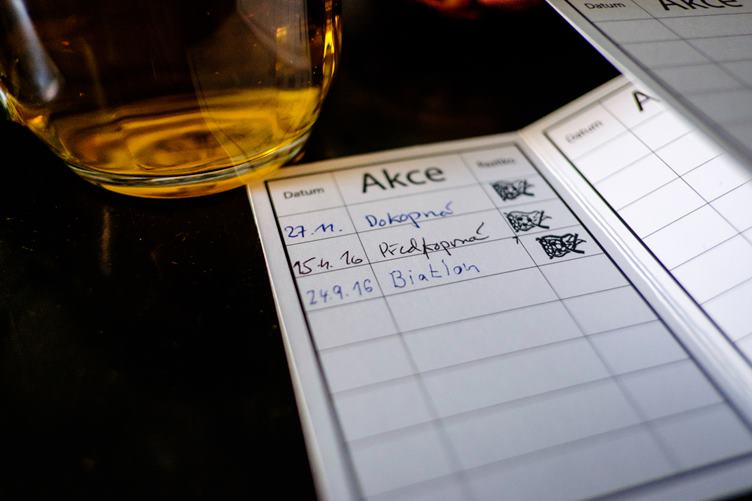 Datum Akce Razítko
27.11. Dokopná
15.4.16 Předkopná
24.9.16 Biatlon
Datum A
Datum Akce